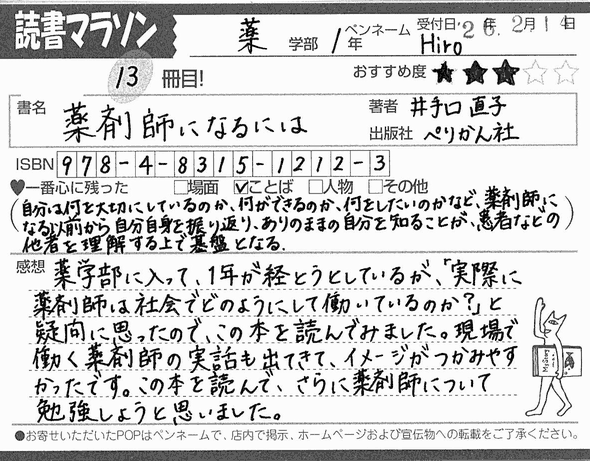 読書マラソン
薬 学部 1年 ペンネーム Hiro 受付日:'26年 2月14日
13 冊目! おすすめ度 ★★★☆☆
書名 薬剤師になるには
著者 井手口 直子
出版社 ぺりかん社
ISBN 978-4-8315-1212-3
♥一番心に残った □場面 ☑ことば □人物 □その他
(自分は何を大切にしているのか、何ができるのか、何をしたいのかなど、薬剤師に
なる以前から自分自身を振り返り、ありのままの自分を知ることが、患者などの
他者を理解する上で基盤となる.)
感想 薬学部に入って、1年が経とうとしているが、「実際に
薬剤師は社会でどのようにして働いているのか?」と
疑問に思ったので、この本を読んでみました。現場で
働く薬剤師の実話も出てきて、イメージがつかみやす
かったです。この本を読んで、さらに薬剤師について
勉強しようと思いました。
●お寄せいただいたPOPはペンネームで、店内で掲示、ホームページおよび宣伝物への転載をご了承ください。